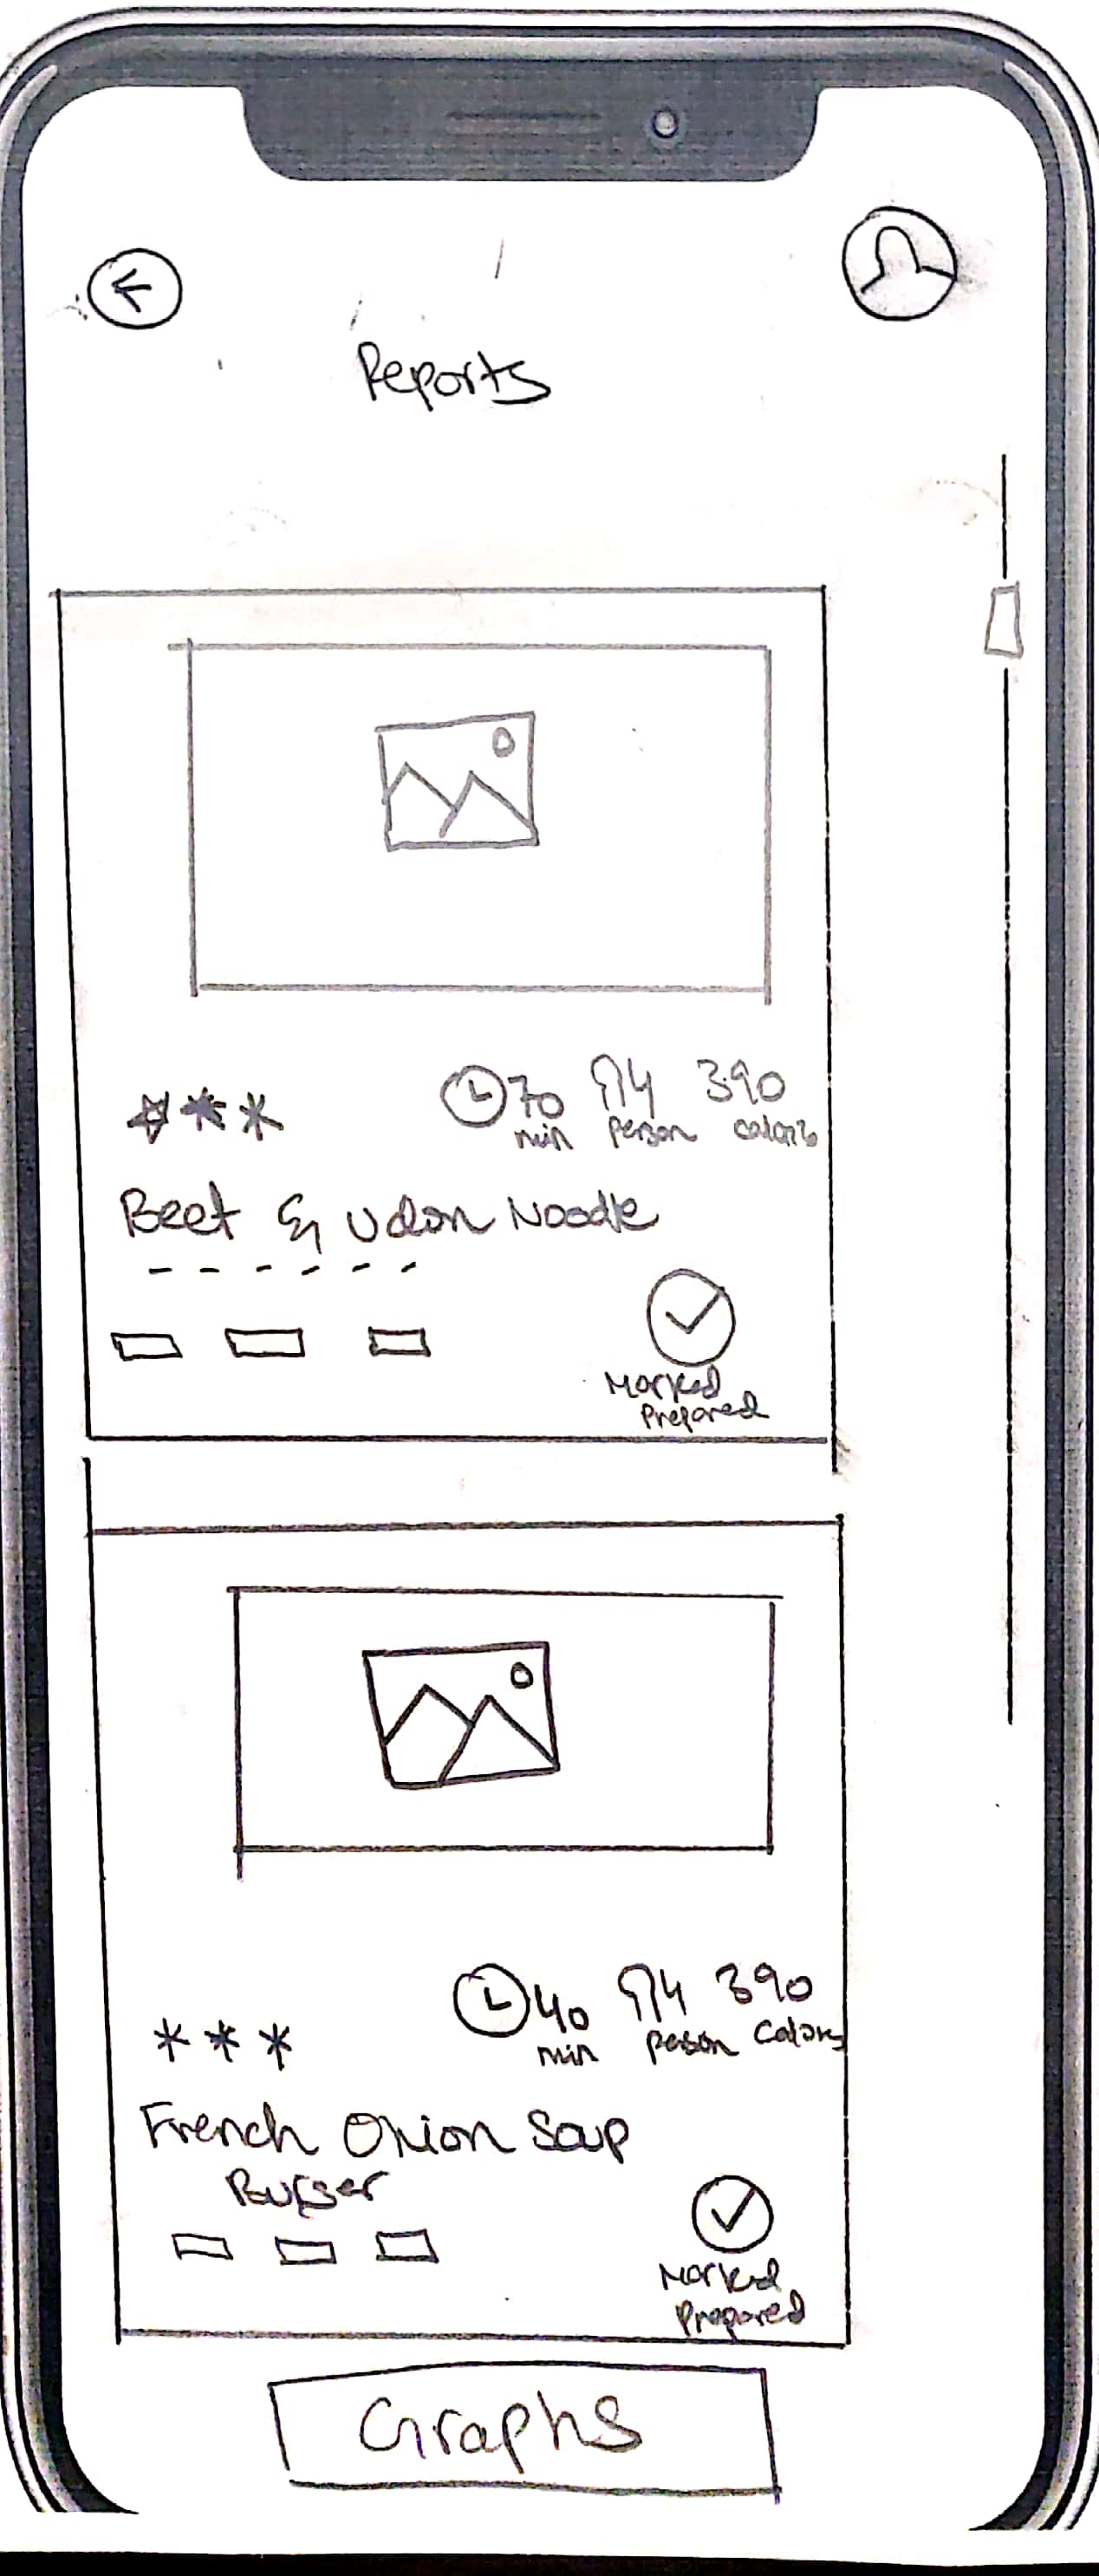 Reports
70 min 4 person 390 calories
Beef & Udon Noodle
Marked
Prepared
40 min 4 person 390 Calories
French Onion Soup
Burger
Marked
Prepared
Graphs